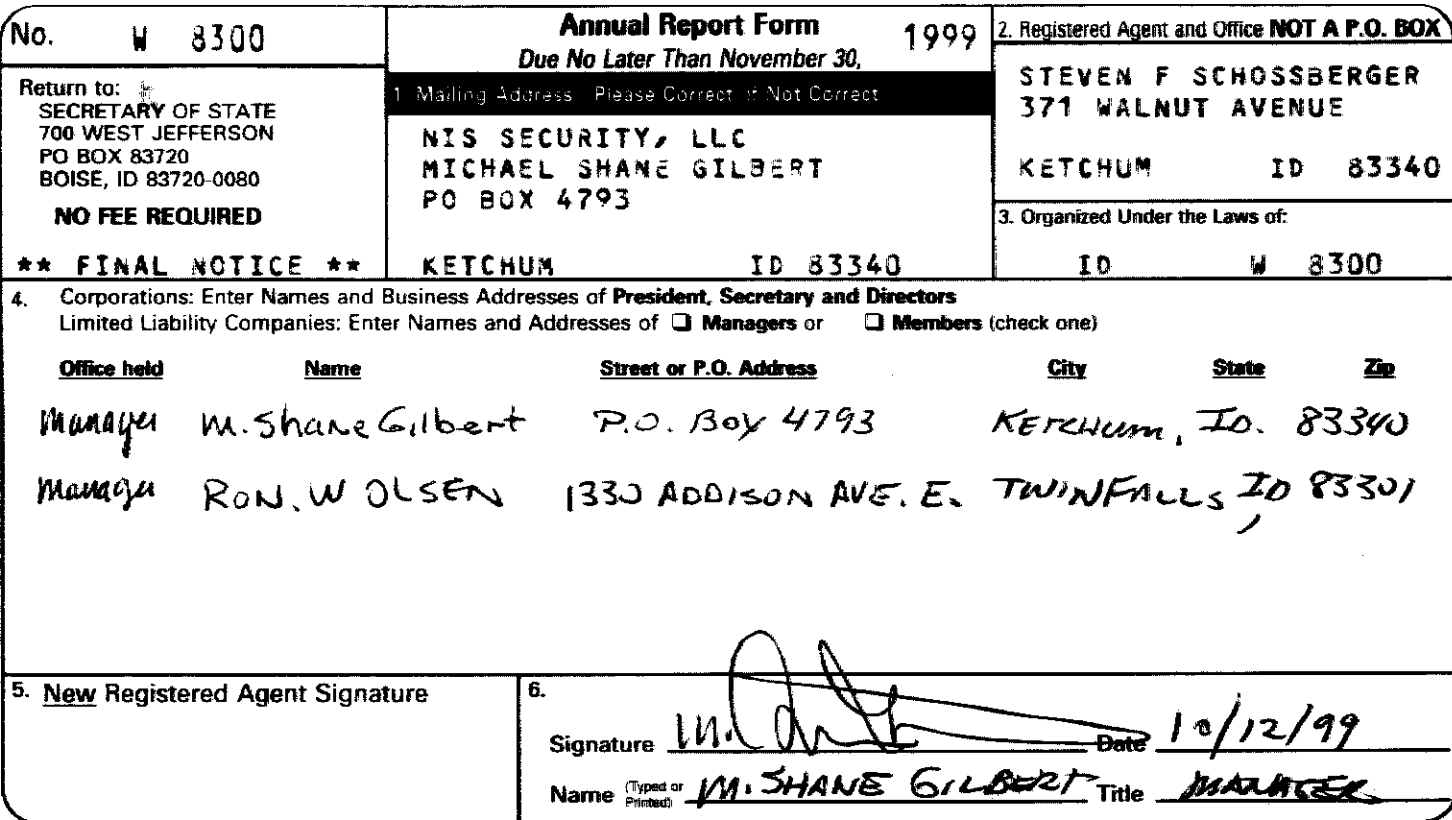 No. W 8300
Return to:
SECRETARY OF STATE
700 WEST JEFFERSON
PO BOX 83720
BOISE, ID 83720-0080
NO FEE REQUIRED
** FINAL NOTICE **
Annual Report Form 1999
Due No Later Than November 30,
1 Mailing Address Please Correct If Not Correct
NIS SECURITY, LLC
MICHAEL SHANE GILBERT
PO BOX 4793
KETCHUM ID 83340
2. Registered Agent and Office NOT A P.O. BOX
STEVEN F SCHOSSBERGER
371 WALNUT AVENUE
KETCHUM ID 83340
3. Organized Under the Laws of:
ID W 8300
4. Corporations: Enter Names and Business Addresses of President, Secretary and Directors
Limited Liability Companies: Enter Names and Addresses of ❑ Managers or ❑ Members (check one)
Office held Name Street or P.O. Address City State Zip
Manager M. Shane Gilbert P.O. Box 4793 KETCHUM, ID. 83340
Manager RON. W OLSEN 1330 ADDISON AVE. E. TWIN FALLS, ID 83301
5. New Registered Agent Signature
6.
Signature Date 10/12/99
Name (Typed or Printed) M. SHANE GILBERT Title MANAGER